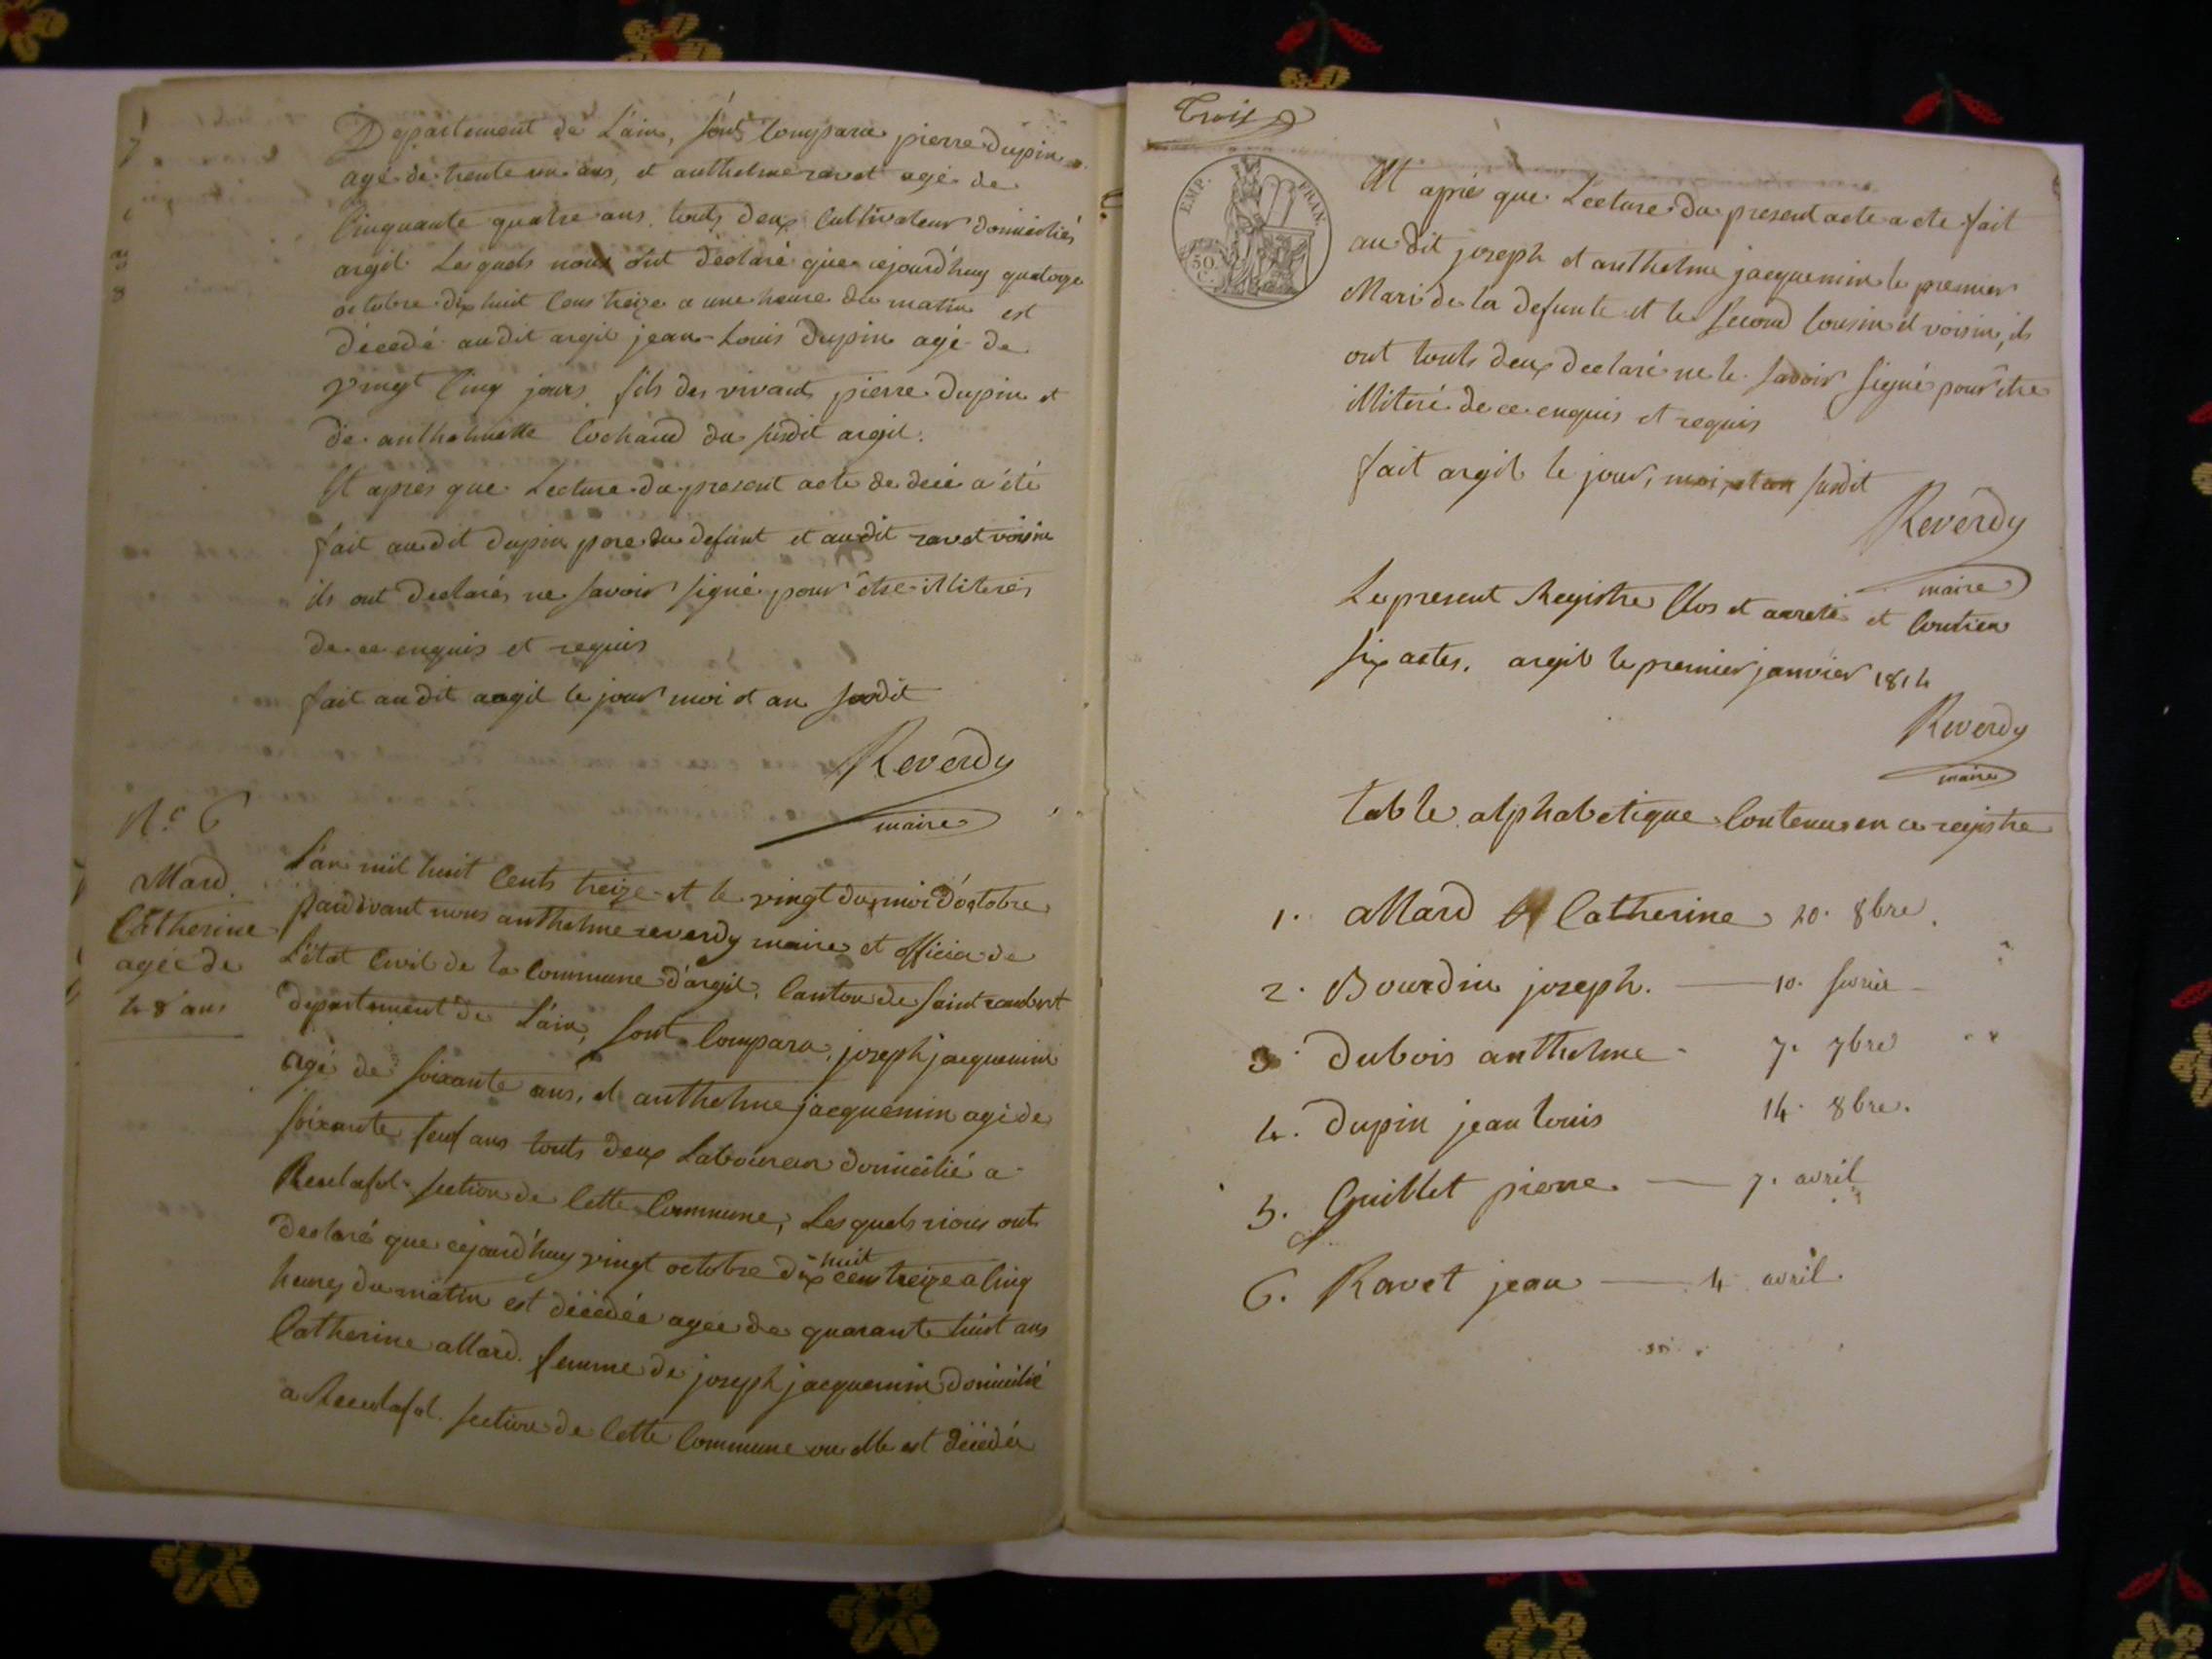 Departement de L'ain, sont Comparu pierre dupin
agé de trente un ans, et anthelme ravet agé de
Cinquante quatre ans touts deux Cultivateur domiciliés
argil Lesquels nous ont déclaré que cejourd'huy quatorze
octobre dix huit Cens treize a une heure du matin est
décedé audit argil jean-Louis dupin agé de
vingt Cinq jours fils des vivants pierre dupin et
de anthelmette Cochand du susdit argil.
Et apres que Lecture du present acte de decé a été
fait audit dupin pere du defunt et audit ravet voisin
ils ont declarés ne savoir signé pour être illiterés
de ce enquis et requis
fait audit argil le jour moi et an susdit
Reverdy
maire
N.° 6
allard
Catherine
agée de
48 ans
L'an mil huit Cents treize et le vingt du moi d'octobre
pardevant nous anthelme reverdy maire et officier de
L'état Civil de la Commune d'argil, Canton de saint rambert
departement de L'ain, sont Comparu, joseph jacquemin
agé de soixante ans, et anthelme jacquemin agé de
soixante ans touts deux Laboureur domicilié a
Reculafol section de Cette Commune, Lesquels nous ont
declaré que cejourd'huy vingt octobre dix huit cens treize a Cinq
heures du matin est décedée agée de quarante huit ans
Catherine allard femme de joseph jacquemin domicilié
a Reculafol section de Cette Commune ou elle est décedée
trois
EMP. FRAN.
50 C.
Et aprés que Lecture du present acte a ete fait
au dit joseph et anthelme jacquemin le premier
Mari de la defunte et le second Cousin et voisin, ils
ont touts deux declaré ne le savoir signé pour être
illiteré de ce enquis et requis
fait argil le jour, moi, et an susdit
Reverdy
maire
Le present Registre Clos et arreté et Contien
six actes. argil le premier janvier 1814
Reverdy
maire
table alphabetique Contenue en ce registre
1. allard Catherine 20. 8bre.
2. Bourdin joseph. — 10. fevrier
3. dubois anthelme 7. 7bre
4. dupin jean louis 14. 8bre.
5. Guillet pierre — 7. avril
6. Ravet jean — 4 avril.